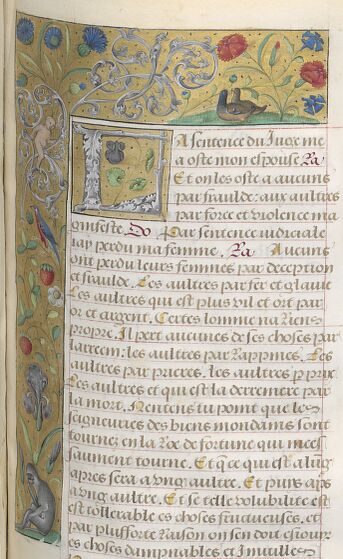 La sentence du Juge me
a oste mon espouse. Ra
Et on les oste a aucuns
par fraulde: aux aultres
par force et violence ma
nifeste. Do Par sentence iudiciale
iay perdu ma femme. Ra Aucuns
ont perdu leurs femmes par deception
et fraulde. Les aultres par fer et glaive
Les aultres qui est plus vil et ort par
or et argent. Certes lomme na Riens
propre. Il pert aucunes de ses choses par
larrecin: les aultres par Rappines. Les
aultres par prieres. les aultres p prix.
Les aultres et qui est la derreniere par
la mort. Nentens tu point que les
seigneuries des biens mondains sont
tournez en la Roe de fortune qui
saument tourne. Et que ce qui est a lug
apres sera a vng aultre. Et puis aps
a vng aultre. Et se telle volubilite est
est tollerable es choses fructueuses. et
par plus forte Raison on sen doit esiouir
es choses dampnables et Inutiles